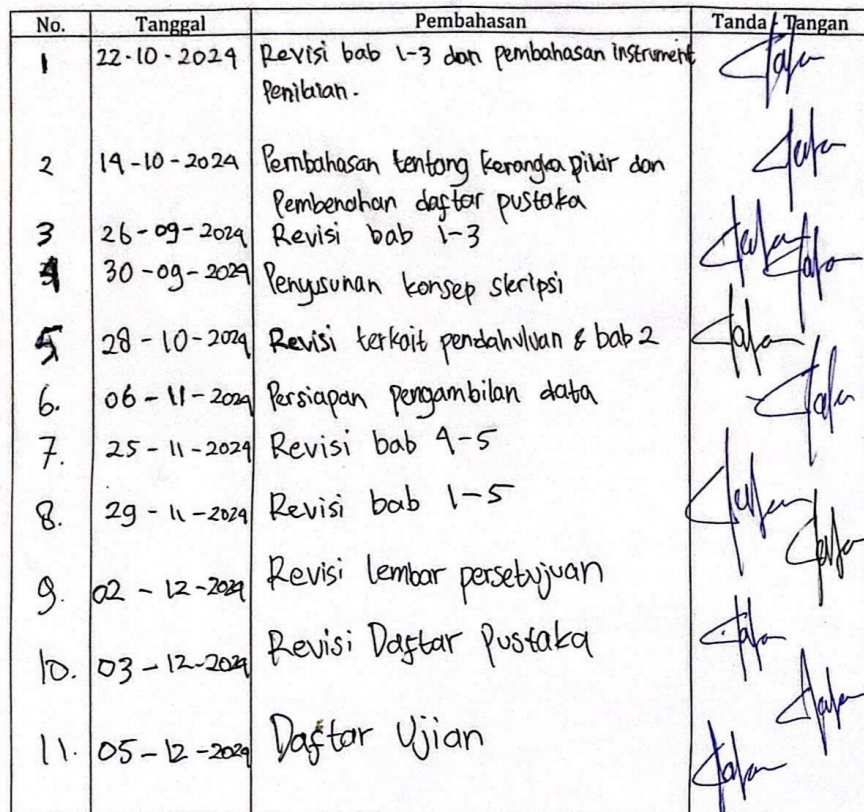 No. Tanggal Pembahasan Tanda Tangan
1 22-10-2024 Revisi bab 1-3 dan pembahasan instrument
Penilaian.
2 14-10-2024 Pembahasan tentang kerangka pikir dan
Pembenahan daftar pustaka
3 26-09-2024 Revisi bab 1-3
4 30-09-2024 Penyusunan konsep skripsi
5 28-10-2024 Revisi terkait pendahuluan & bab 2
6. 06-11-2024 Persiapan pengambilan data
7. 25-11-2024 Revisi bab 4-5
8. 29-11-2024 Revisi bab 1-5
9. 02-12-2024 Revisi lembar persetujuan
10. 03-12-2024 Revisi Daftar Pustaka
11. 05-12-2024 Daftar Ujian